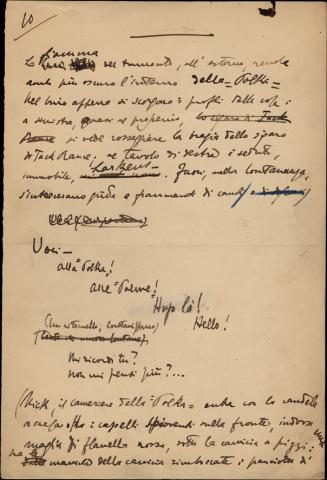 10
La fiamma del tramonto, all'esterno, rende
anche più oscuro l'interno della "Polka".
Nel buio appena si scorgono i profili delle cose:
a sinistra quasi al proscenio, lo sigaro di Jack
Rance si vede rosseggiare la bragia dello sigaro
di Jack Rance, al tavolo di destra è seduto,
immobile, Larkens. Fuori, nella lontananza,
s'intersecano grida e frammenti di canti
Voci -
alla "Polka"!
alle "Palme"!
"Hups là!
Hello!
(Un ritornello, lontanissimo)
Mi ricordi tu?
non mi pensi più?...
(Nick, il cameriere della "Polka" entra con la candela
accesa. Ha i capelli spioventi sulla fronte, indossa
maglia di flanella rossa, sotto la camicia a pizzi:
ha le maniche della camicia rimboccate: i panciotti di